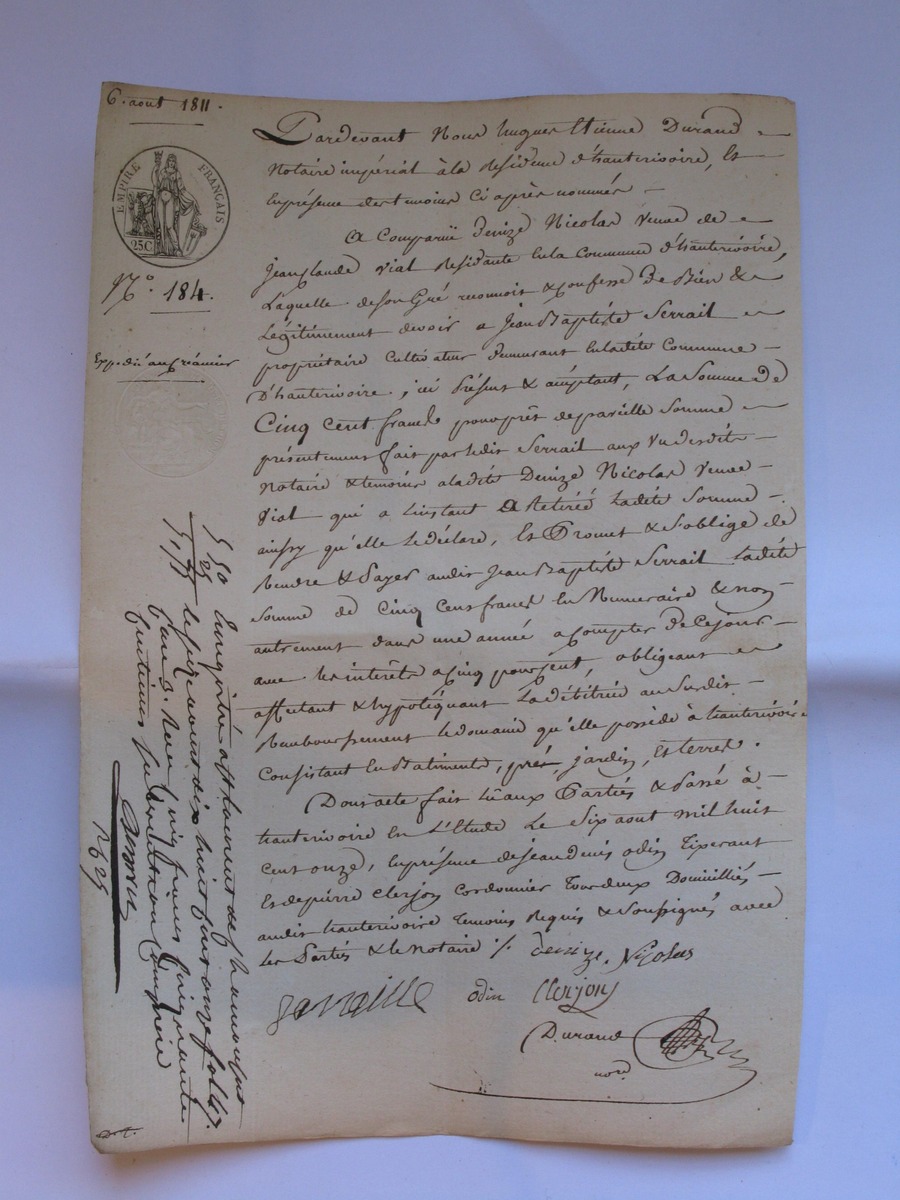 6. aout 1811.
EMPIRE FRANÇAIS
25C
N.° 184.
Expedié au créancier
Pardevant Nous hugues Etienne Durand
Notaire impérial à la Residence d'hauterivoire, Et
En présence des temoins Ci après nommés
A Comparüe denize Nicolas veuve de
Jean Claude Vial Residante En la Commune d'hauterivoire,
Laquelle de son Gré reconnoit & confesse De Bien &
Légitimement devoir a Jean Baptiste Serrail
propriétaire Cultivateur demeurant En ladite Commune
D'hauterivoire, ici Présent & acceptant, La Somme De
Cinq Cent francs pour prêt de pareille Somme
présentement fait par ledit Serrail aux vu desdits
Notaire & temoins a ladite Denize Nicolas Veuve
Vial qui a L'instant a Retirée Ladite Somme
ainsy qu'elle Le déclare, Et Promet & S'oblige de
Rendre & Payer audit Jean Baptiste Serrail Ladite
Somme de Cinq Cent francs En Numeraire & non
autrement dans une année a Compter De Ce jour
avec les intérêts a Cinq pour Cent, obligeant
affectant & hypotéquant La débitrice au Susdit
Remboursement le domaine qu'elle possède à hauterivoire
Consistant En Batiments, prés, jardin, Et terres.
Dont acte fait Lu aux Parties & Passé à
hauterivoire En L'Etude Le Six aout mil huit
Cent onze, En présence de Jean Denis odin Tixerant
Et de pierre Clerjon Cordonnier Tous deux Domiciliés
audit hauterivoire Temoins Requis & Soussignés avec
Les Parties & le Notaire
denize. Nicolas
Seraille odin Clerjon
Durand
not.
Enregistré à St Laurent de Chamousset
le seize aout dix huit cent onze fol. 47.
Case 3. Reçu Cinq francs Cinquante
Centimes Subvention Comprise